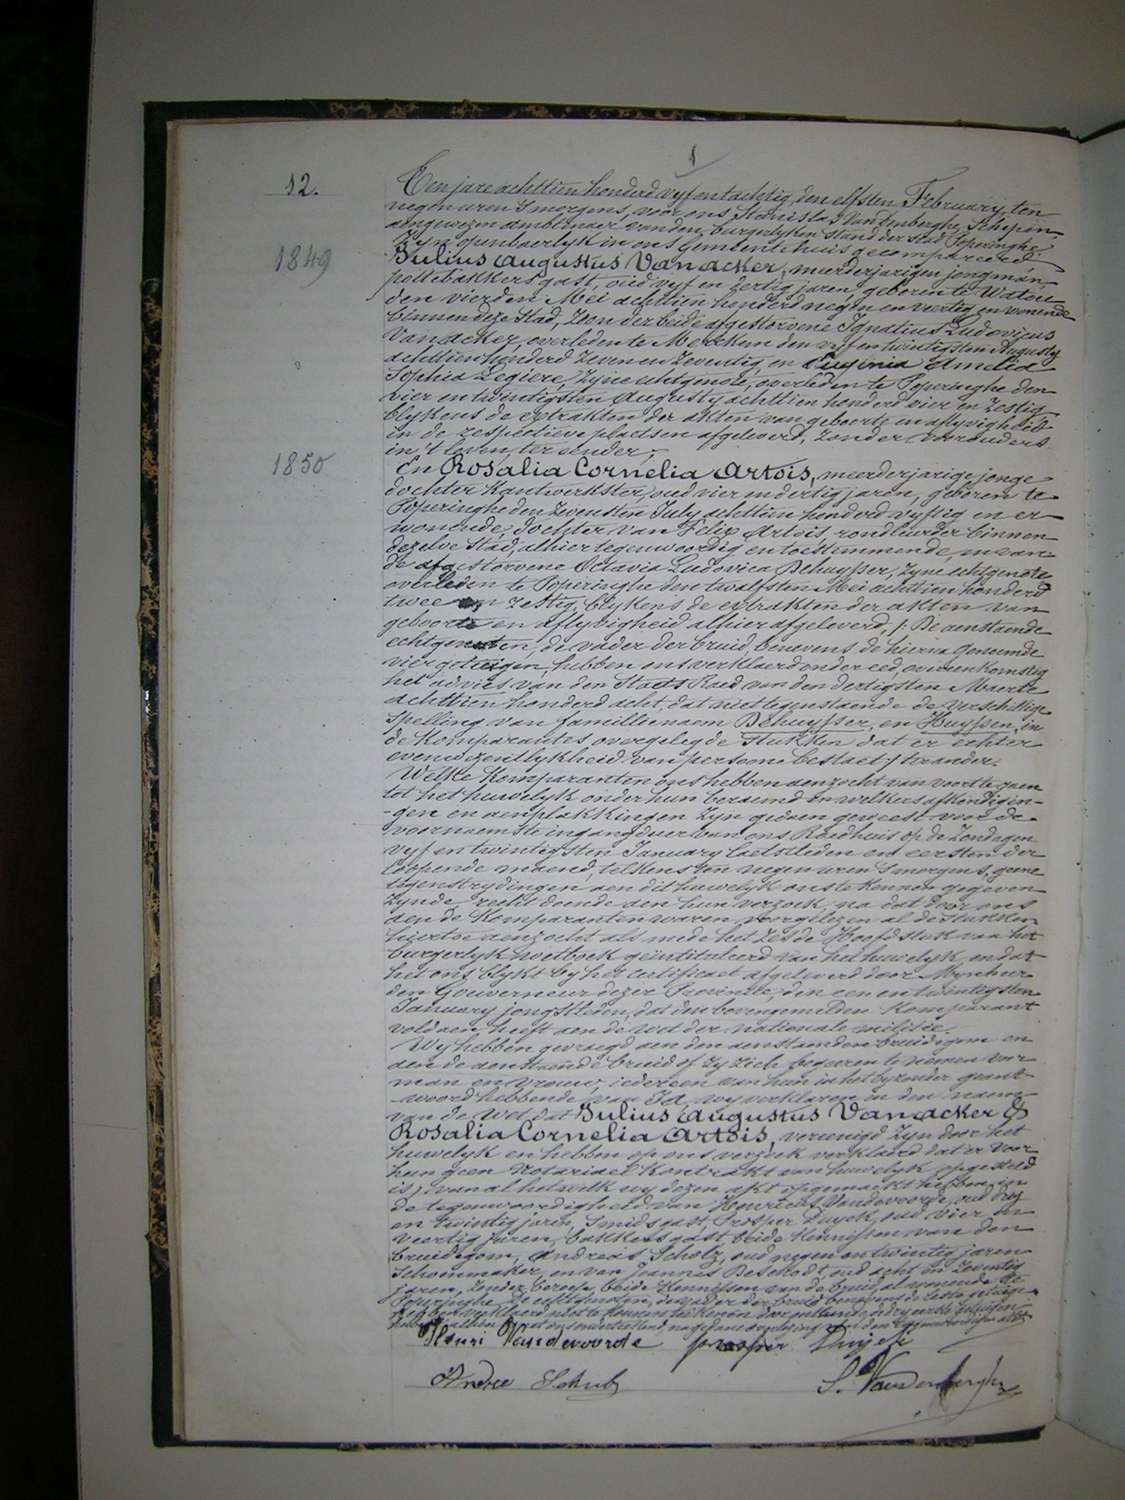 1
12.
Een jare achttien honderd vyf en tachtig, den elfsten February, ten
negen uren 's morgens, voor ons Stanislas Vandenberghe, Schepen,
aengewezen ambtenaer van den burgerlyken stand der stad Poperinghe
Zyn openbaerlyk in ons gemeentehuis gecompareerd
1849
Julius Augustus Vanacker, meerderjarigen jongman,
bakkersgast, oud vyf en dertig jaren, geboren te Watou
den vierden Mei achttien honderd negen en veertig en wonende
binnen deze Stad, Zoon der beide afgestorvene Ignatius Ludovicus
Vanacker, overleden te Merckem den vyf en twintigsten Augusty
achttien honderd zeven en zeventig, en Eugenia Amelia
Sophia Legiere, zyne echtgenote, overleden te Poperinghe den
vier en twintigsten Augusty achttien honderd vier en zestig
blykens de extrakten der akten van geboorte en aflyvigheid
in de respectieve plaetsen afgeleverd, zonder vorouders
in 't leven, ter eender;
1850
En Rosalia Cornelia Artois, meerderjarige jonge
dochter Kantwerkster, oud vier en dertig jaren, geboren te
Poperinghe den zevensten July achttien honderd vyftig en er
wonende, dochter van Felix Artois, rondleurder binnen
dezelve Stad, alhier tegenwoordig en toestemmende, en van
de afgestorvene Octavia Ludovica Dehuysser, zyne echtgenote
overleden te Poperinghe den twaelfsten Mei achttien honderd
twee en zestig, blykens de extrakten der akten van
geboorte en aflyvigheid alhier afgeleverd /: De aenstaende
echtgenoten, de vader der bruid, benevens de hierna genoemde
vier getuigen, hebben ons verklaerd onder eed, overeenkomstig
het advies van den Staets Raed van den dertigsten Maerte
achttien honderd acht, dat niettegenstaende de verschillige
spelling van familienaem Dehuysser, en Huyssen, in
de Komparantes overgelegde Stukken dat er echter
evenwezentlykheid van persoone bestaet / ter ander.
Welke Komparanten ons hebben aenzocht van voort te gaen
tot het huwelyk onder hun beraemd en welkers afkondigin-
-gen en aenplakkingen zyn gedaen geweest voor de
voornaemste ingangdeur van ons Raedhuis op de Zondagen
vyf en twintigsten January laetstleden en eersten der
loopende maend, telkens ten negen uren 's morgens, geene
tegenstrydingen aen dit huwelyk ons te kennen gegeven
zynde, recht doende aen hun verzoek, na dat door ons
aen de Komparanten waren voorgelezen al de Stukken
hiertoe aenzocht als mede het zesde Hoofdstuk van het
burgerlyk wetboek geïntituleerd van het huwelyk, en dat
het ons blykt by het certificaet afgeleverd door Mynheer
den Gouverneur dezer Provincie, den een en twintigsten
January jongstleden, dat den bovengemelden Komparant
voldaen heeft aen de wet der nationale militie.
Wy hebben gevraegd aen den aenstaenden bruidegom en
aen de aenstaende bruid of zy zich begeeren te nemen voor
man en vrouw, iedereen van hun in het byzonder geant-
-woord hebbende van Ja, wy verklaren in den naem
van de Wet dat Julius Augustus Vanacker &
Rosalia Cornelia Artois, vereenigd zyn door het
huwelyk en hebben op ons verzoek verklaerd dat er voor
hun geen Notariael Kontrakt van huwelyk opgesteld
is, van al hetwelk wy dezen akt opgemaekt hebben in
de tegenwoordigheid van Henricus Vandevoorde, oud dry
en twintig jaren, Smidsgast, Prosper Duyck, oud vier en
veertig jaren, bakkersgast, beide Kennissen van den
bruidegom, Andreas Scholz, oud negen en twintig jaren
Schoenmaker, en van Joannes Deschodt, oud acht en zeventig
jaren, zonder beroep, beide Kennissen van de bruid al wonende te
Poperinghe. De echtgenoten, de vader der bruid benevens de leste getuige
Henri Vandevoorde prosper Duyck
Andre Scholz
S. Vandenberghe